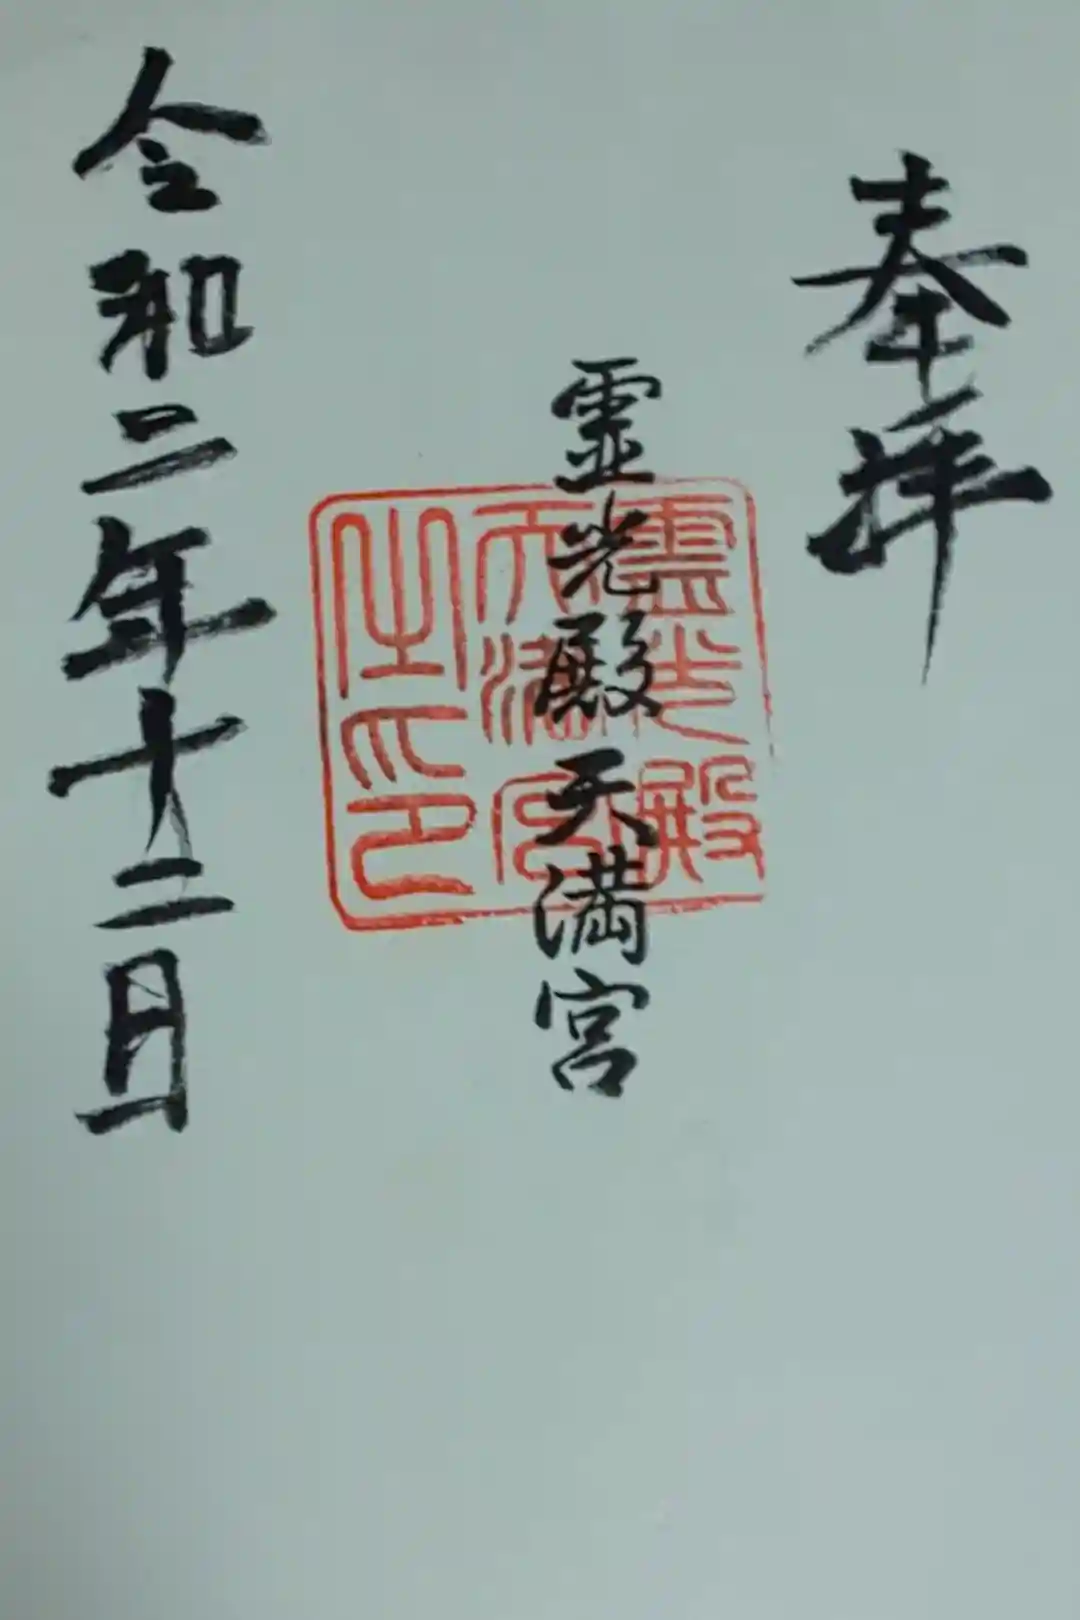 奉拝
霊光殿天満宮
令和二年十二月
霊光殿
天満宮
之印